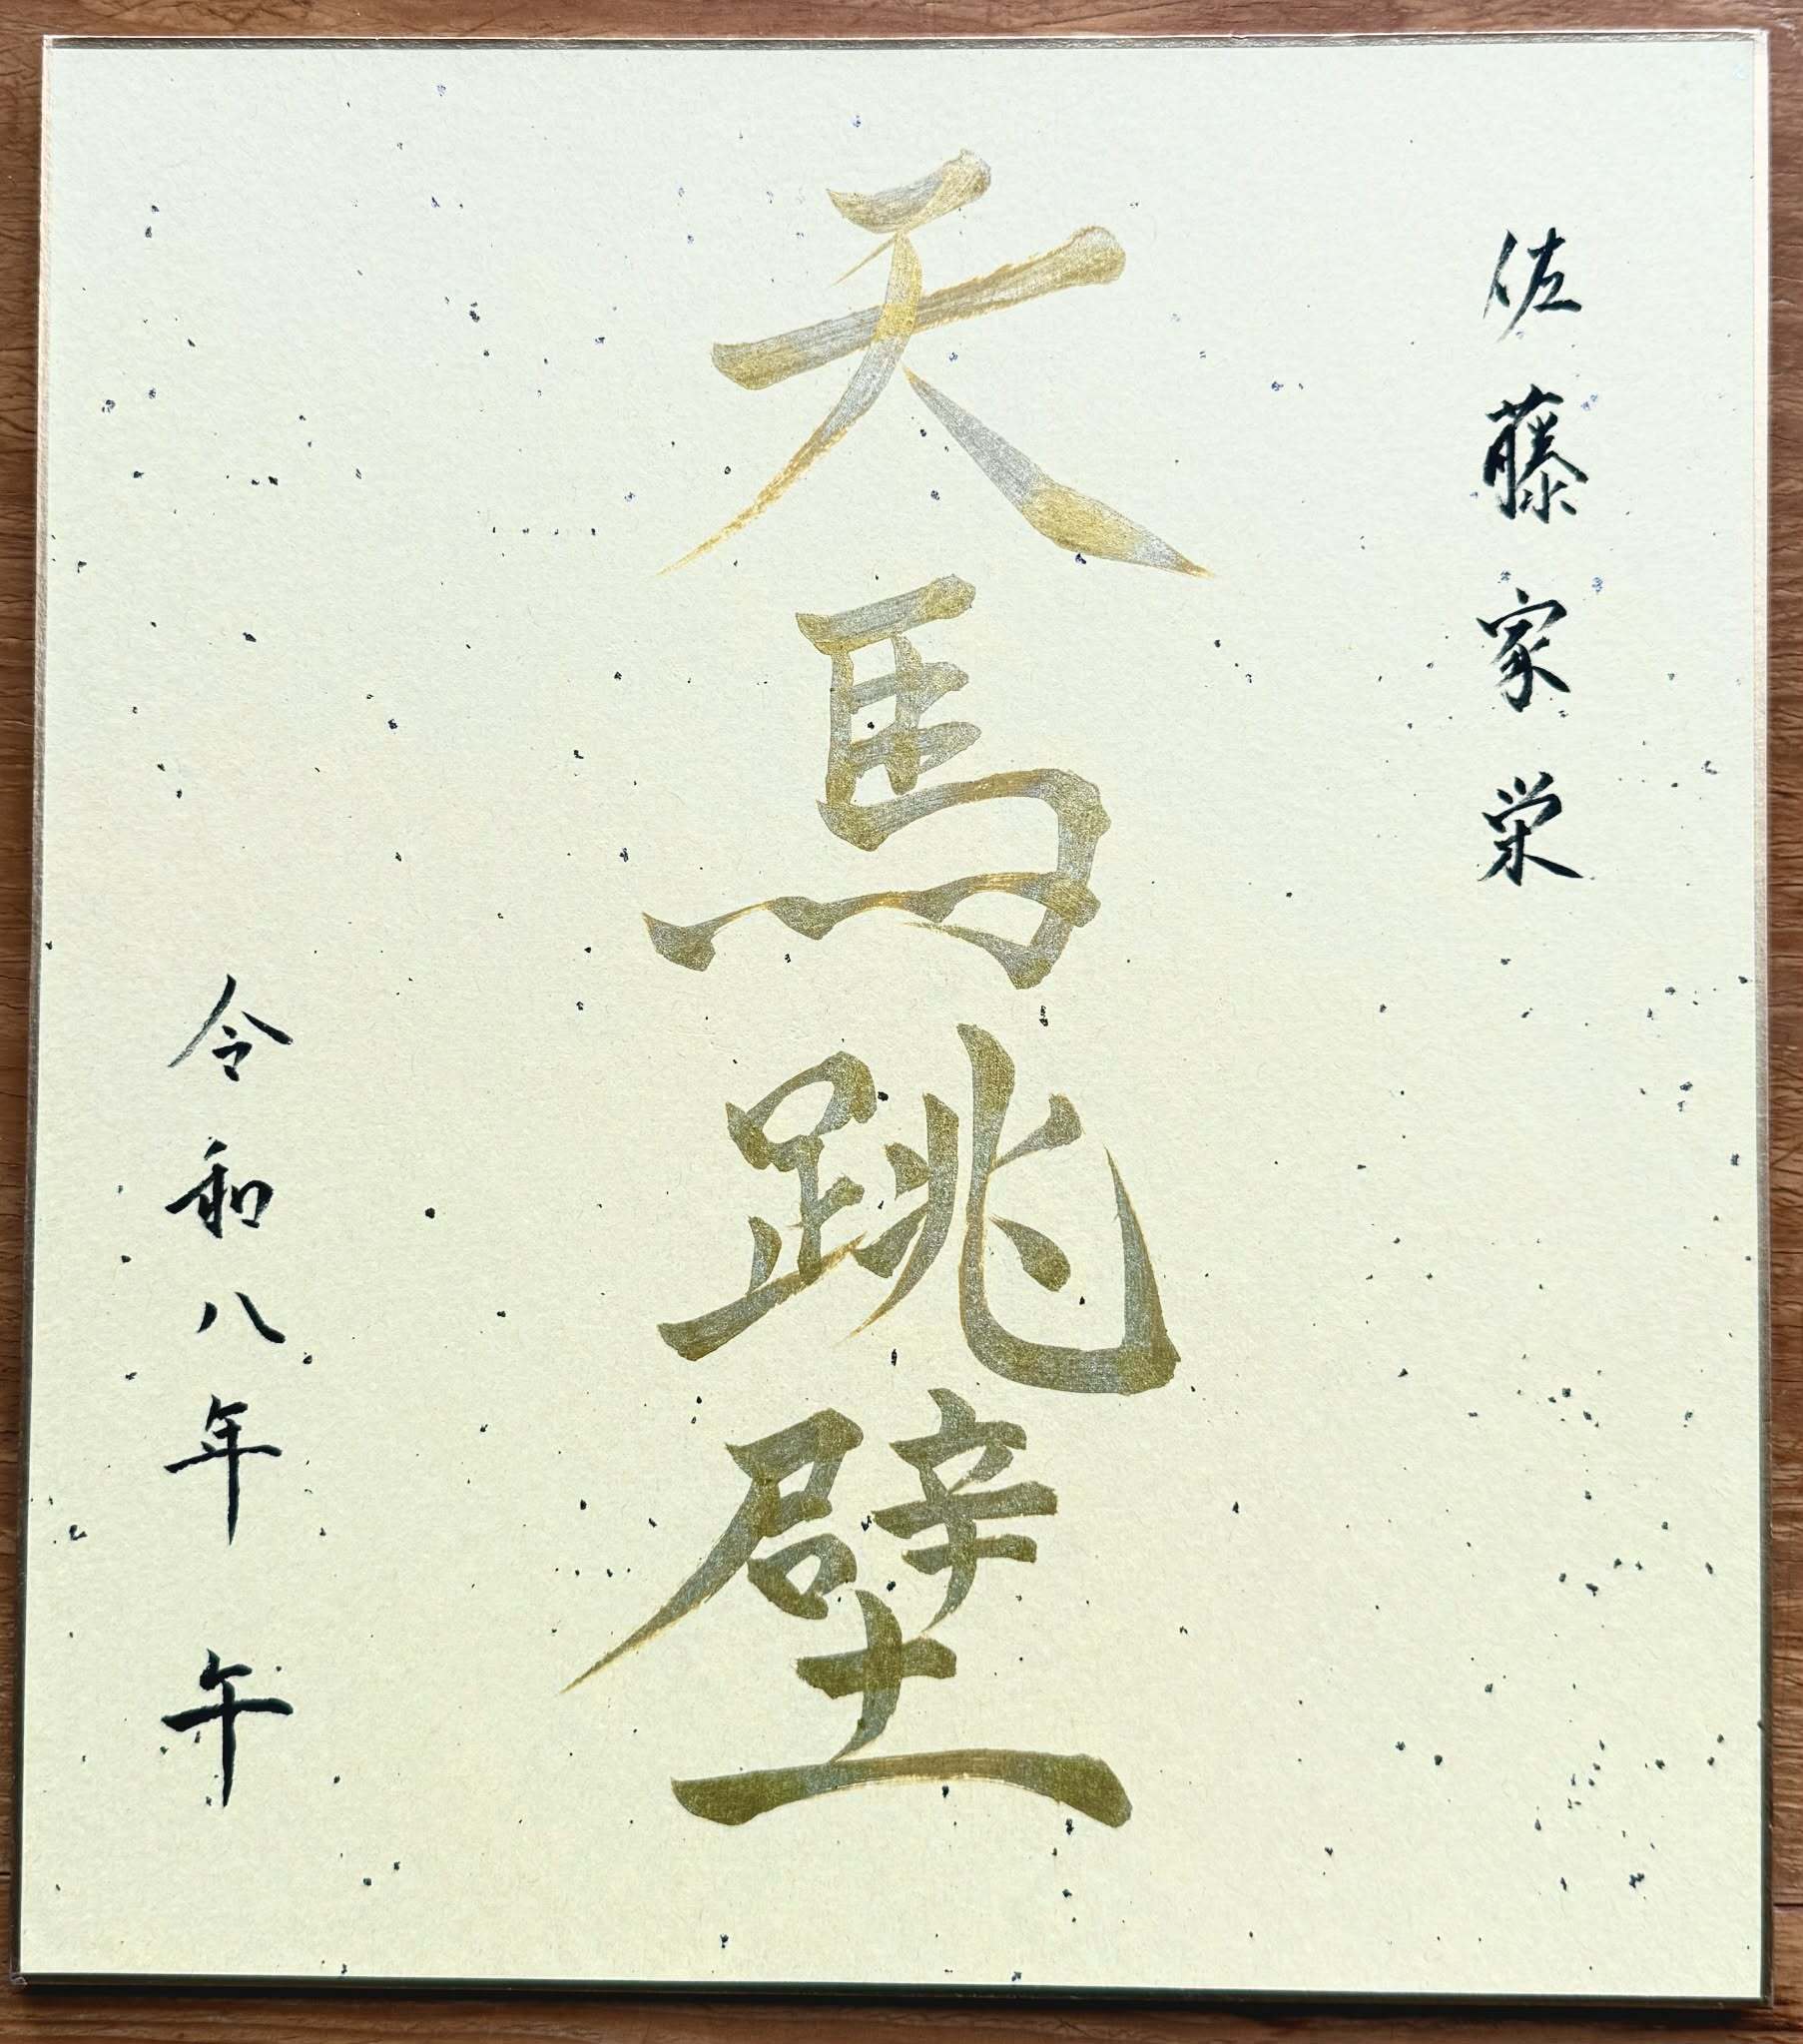 佐藤家栄
天馬跳壁
令和八年 午